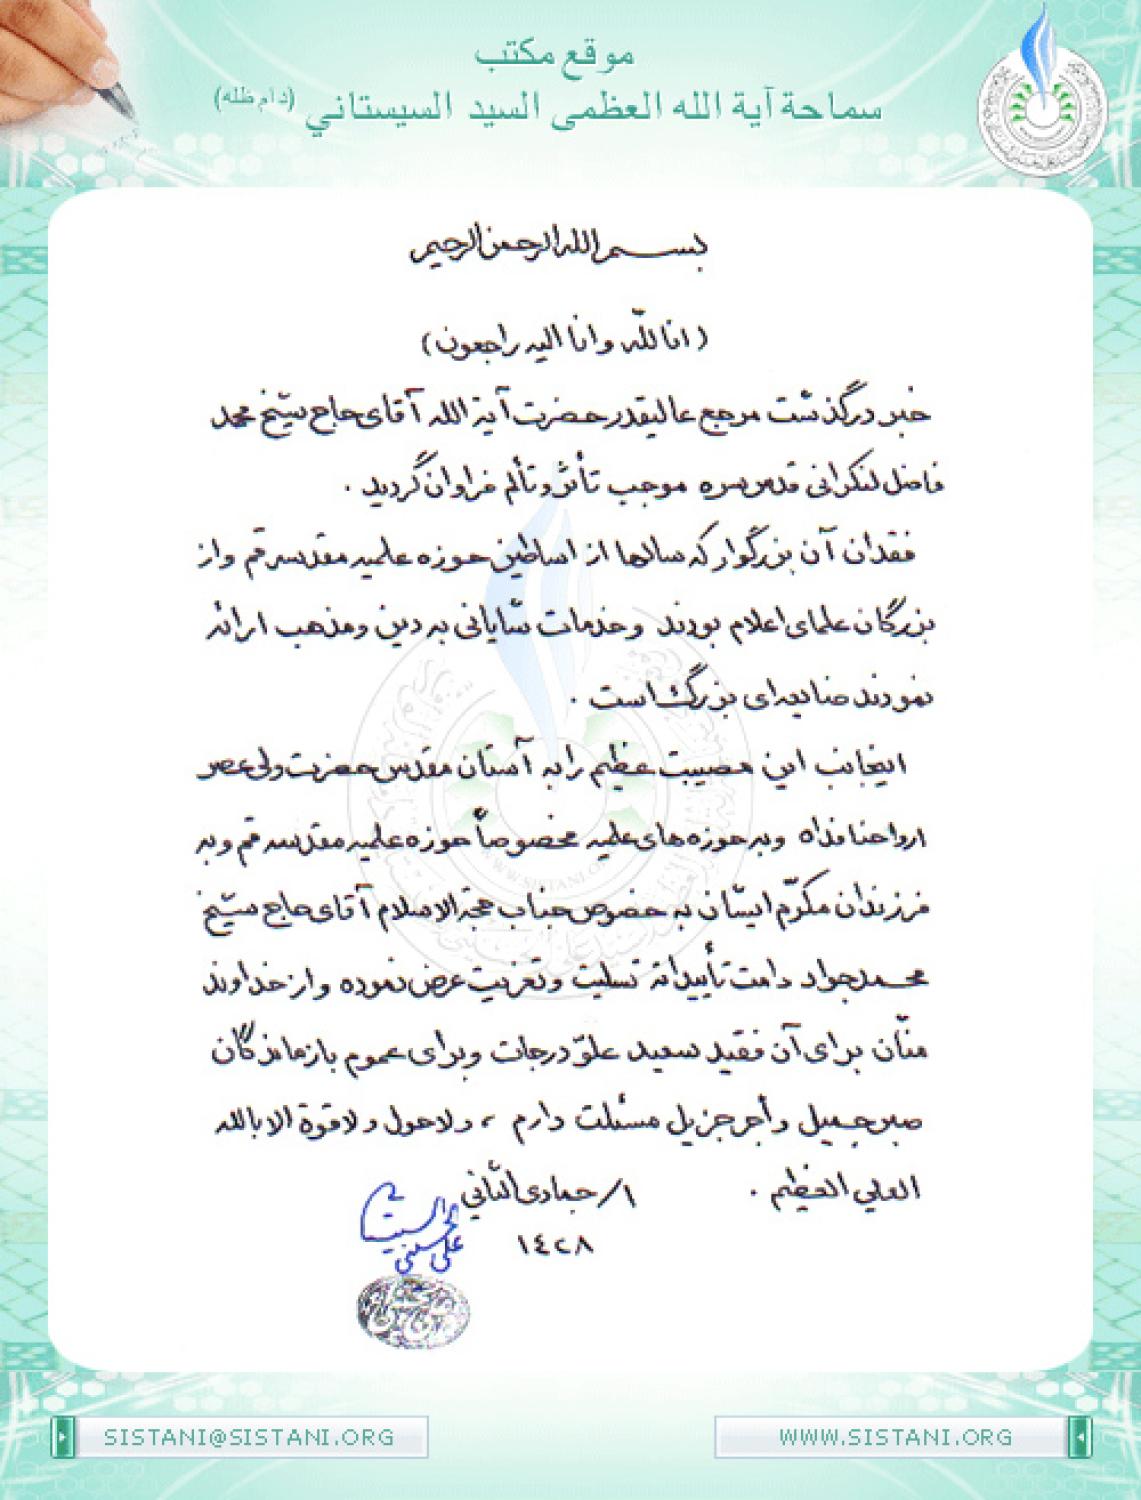 موقع مكتب
سماحة آية الله العظمى السيد السيستاني (دام ظله)
بسم الله الرحمن الرحيم
(انا لله وانا اليه راجعون)
خبر درگذشت مرجع عاليقدر حضرت آية الله آقاى حاج شيخ محمد
فاضل لنكرانى قدس سره موجب تأثر وتألم فراوان گرديد .
فقدان آن بزرگوار كه سالها از اساطين حوزه علميه مقدسه قم واز
بزرگان علماى اعلام بودند وخدمات شايانى به دين ومذهب ارائه
نمودند ضايعه اى بزرگ است .
اينجانب اين مصيبت عظيم را به آستان مقدس حضرت ولى عصر
ارواحنا فداه وبه حوزه هاى علميه مخصوصاً حوزه علميه مقدسه قم وبه
فرزندان مكرّم ايشان به خصوص جناب حجة الاسلام آقاى حاج شيخ
محمد جواد دامت تأييداته تسليت وتعزيت عرض نموده واز خداوند
منّان براى آن فقيد سعيد علوّ درجات وبراى عموم بازماندگان
صبر جميل وأجر جزيل مسئلت دارم ، ولاحول ولاقوة الا بالله
العلي العظيم . ١/ جمادى الثاني
١٤٢٨
علي الحسيني السيستاني
SISTANI@SISTANI.ORG
WWW.SISTANI.ORG